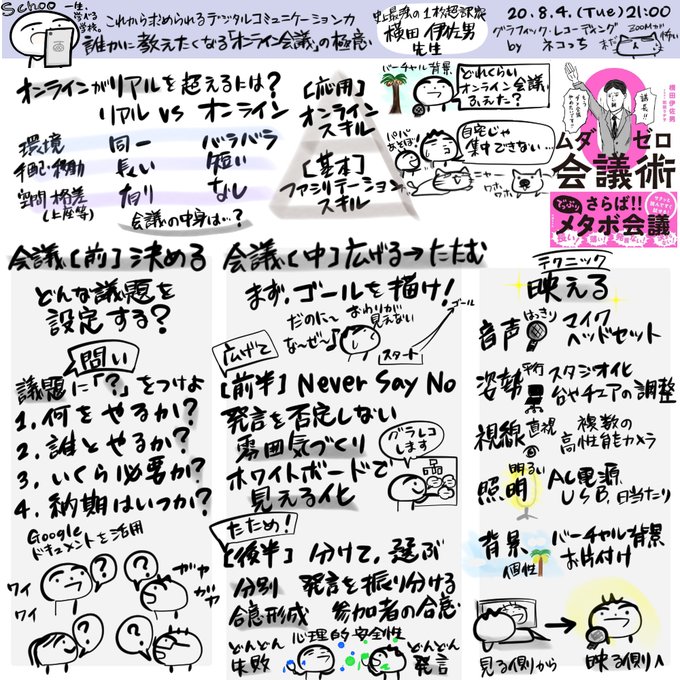 Schoo
一生、学べる学校。
これから求められるデジタルコミュニケーション力
誰かに教えたくなる「オンライン会議」の極意
史上最強の1枚超訳家
横田 伊佐男
先生
20.8.4.(Tue)21:00
グラフィック・レコーディング
by ネコっち
まだZOOMが怖い
オンラインがリアルを超えるには?
リアル vs オンライン
環境 同一 バラバラ
手配・移動 長い 短い
空間・格差 有り なし
(上座等)
会議の中身は…?
[応用]
オンライン
スキル
[基本]
ファシリテーション
スキル
バーチャル背景
どれくらい
オンライン会議
ふえた?
パパ
あそぼ
自宅じゃ
集中できない…
ニャー
ワホ
ワホ
横田伊佐男
議長!
ムダゼロ
会議術
さらば!!
メタボ会議
会議[前]決める
どんな議題を
設定する?
問い
議題に「?」をつけよ
1.何をやるか?
2.誰とやるか?
3.いくら必要か?
4.納期はいつか?
Google
ドキュメントを活用
ワイ
ワイ
?
?
ガヤ
ガヤ
?
?
会議[中]広げる→たたむ
まず、ゴールを描け!
だのに〜
な〜ぜ〜♪
おわりが
見えない
ゴール
スタート
広げて
[前半] Never Say No
発言を否定しない
雰囲気づくり
ホワイトボードで
見える化
グラレコ
します
たため!
[後半] 分けて、選ぶ
分別 発言を振り分ける
合意形成 参加者の合意
心理的安全性
どんどん
失敗
どんどん
発言
テクニック
映える
音声 はっきり マイク
ヘッドセット
姿勢 平行 スタジオ化
台やチェアの調整
視線 直視 複数の
高性能カメラ
照明 明るい AC電源
USB、日当たり
背景 個性 バーチャル背景
お片付け
見る側から
映る側へ